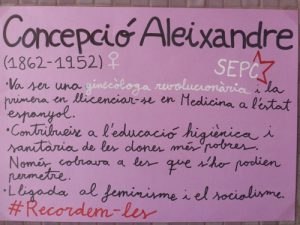 Concepció Aleixandre
(1862-1952) ♀
SEPC
·Va ser una ginecòloga revolucionària i la
primera en llicenciar-se en Medicina a l'estat
espanyol.
·Contribueix a l'educació higiènica i
sanitària de les dones més pobres.
Només cobrava a les que s'ho podien
permetre.
·Lligada al feminisme i el socialisme.
#Recordem-les